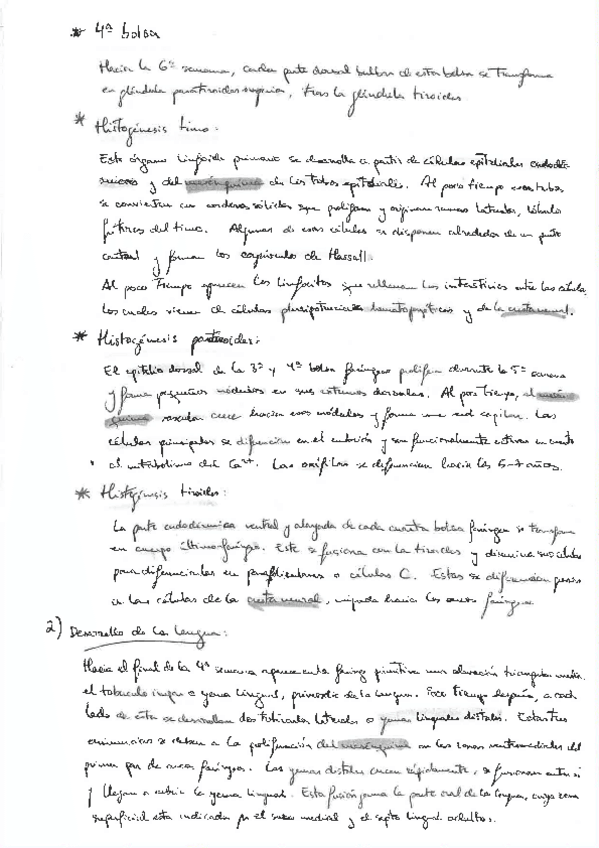 * 4ª bolsa
Hacia la 6ª semana, cada parte dorsal bulbosa de esta bolsa se transforma
en glándula paratiroides superior, tras la glándula tiroides
* Histogénesis timo:
Este órgano linfoide primario se desarrolla a partir de células epiteliales endodé-
rmicas y del mesénquima de los tubos epiteliales. Al poco tiempo esos tubos
se convierten en cordones sólidos que proliferan y originan ramas laterales, lóbulos
futuros del timo. Algunas de esas células se disponen alrededor de un punto
central y forman los corpúsculos de Hassall.
Al poco tiempo aparecen los linfocitos que rellenan los intersticios entre las células,
los cuales vienen de células pluripotenciales hematopoyéticas y de la cresta neural.
* Histogénesis paratiroides:
El epitelio dorsal de la 3ª y 4ª bolsa faríngea prolifera durante la 5ª semana
y forma pequeños nódulos en sus extremos dorsales. Al poco tiempo, el mesén-
quima vascular crece hacia esos nódulos y forma una red capilar. Las
células principales se diferencian en el embrión y son funcionalmente activas en cuanto
al metabolismo del Ca²⁺. Las oxífilas se diferencian hacia los 5-7 años.
* Histogénesis tiroides:
La parte endodérmica ventral y alargada de cada cuarta bolsa faríngea se transforma
en cuerpo últimofaríngeo. Este se fusiona con la tiroides y disemina sus células
para diferenciarlas en parafoliculares o células C. Estas se diferencian
a las células de la cresta neural, hacia los arcos faríngeos
2) Desarrollo de la lengua:
Hacia el final de la 4ª semana aparece en la faringe primitiva una elevación triangular media,
el tubérculo impar o yema lingual, primordio de la lengua. Poco tiempo después, a cada
lado de esta se desarrollan dos tubérculos laterales o yemas linguales distales. Estas tres
se deben a la proliferación del mesénquima en las zonas ventromediales del
primer par de arcos faríngeos. Las yemas distales crecen rápidamente, se fusionan entre sí
y llegan a cubrir la yema lingual. Esta fusión forma la parte oral de la lengua, cuya zona
superficial está indicada por el surco medial y el septo lingual adultos.